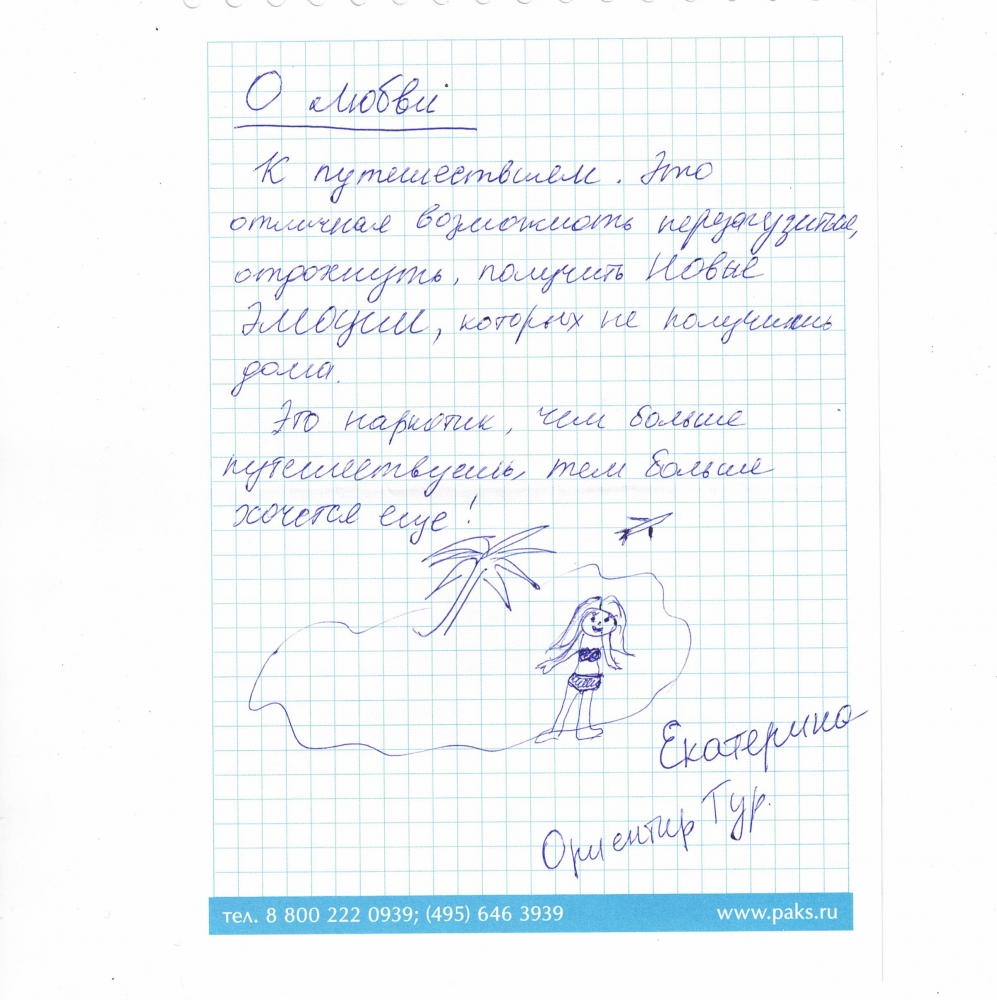 О любви
К путешествием. Это
отличная возможность перезагузиться,
отдохнуть, получить НОВЫЕ
ЭМОЦИИ, которых не получишь
дома.
Это наркотик, чем больше
путешествуешь, тем больше
хочется еще!
Екатерина
Ориентир Тур.
тел. 8 800 222 0939; (495) 646 3939 www.paks.ru